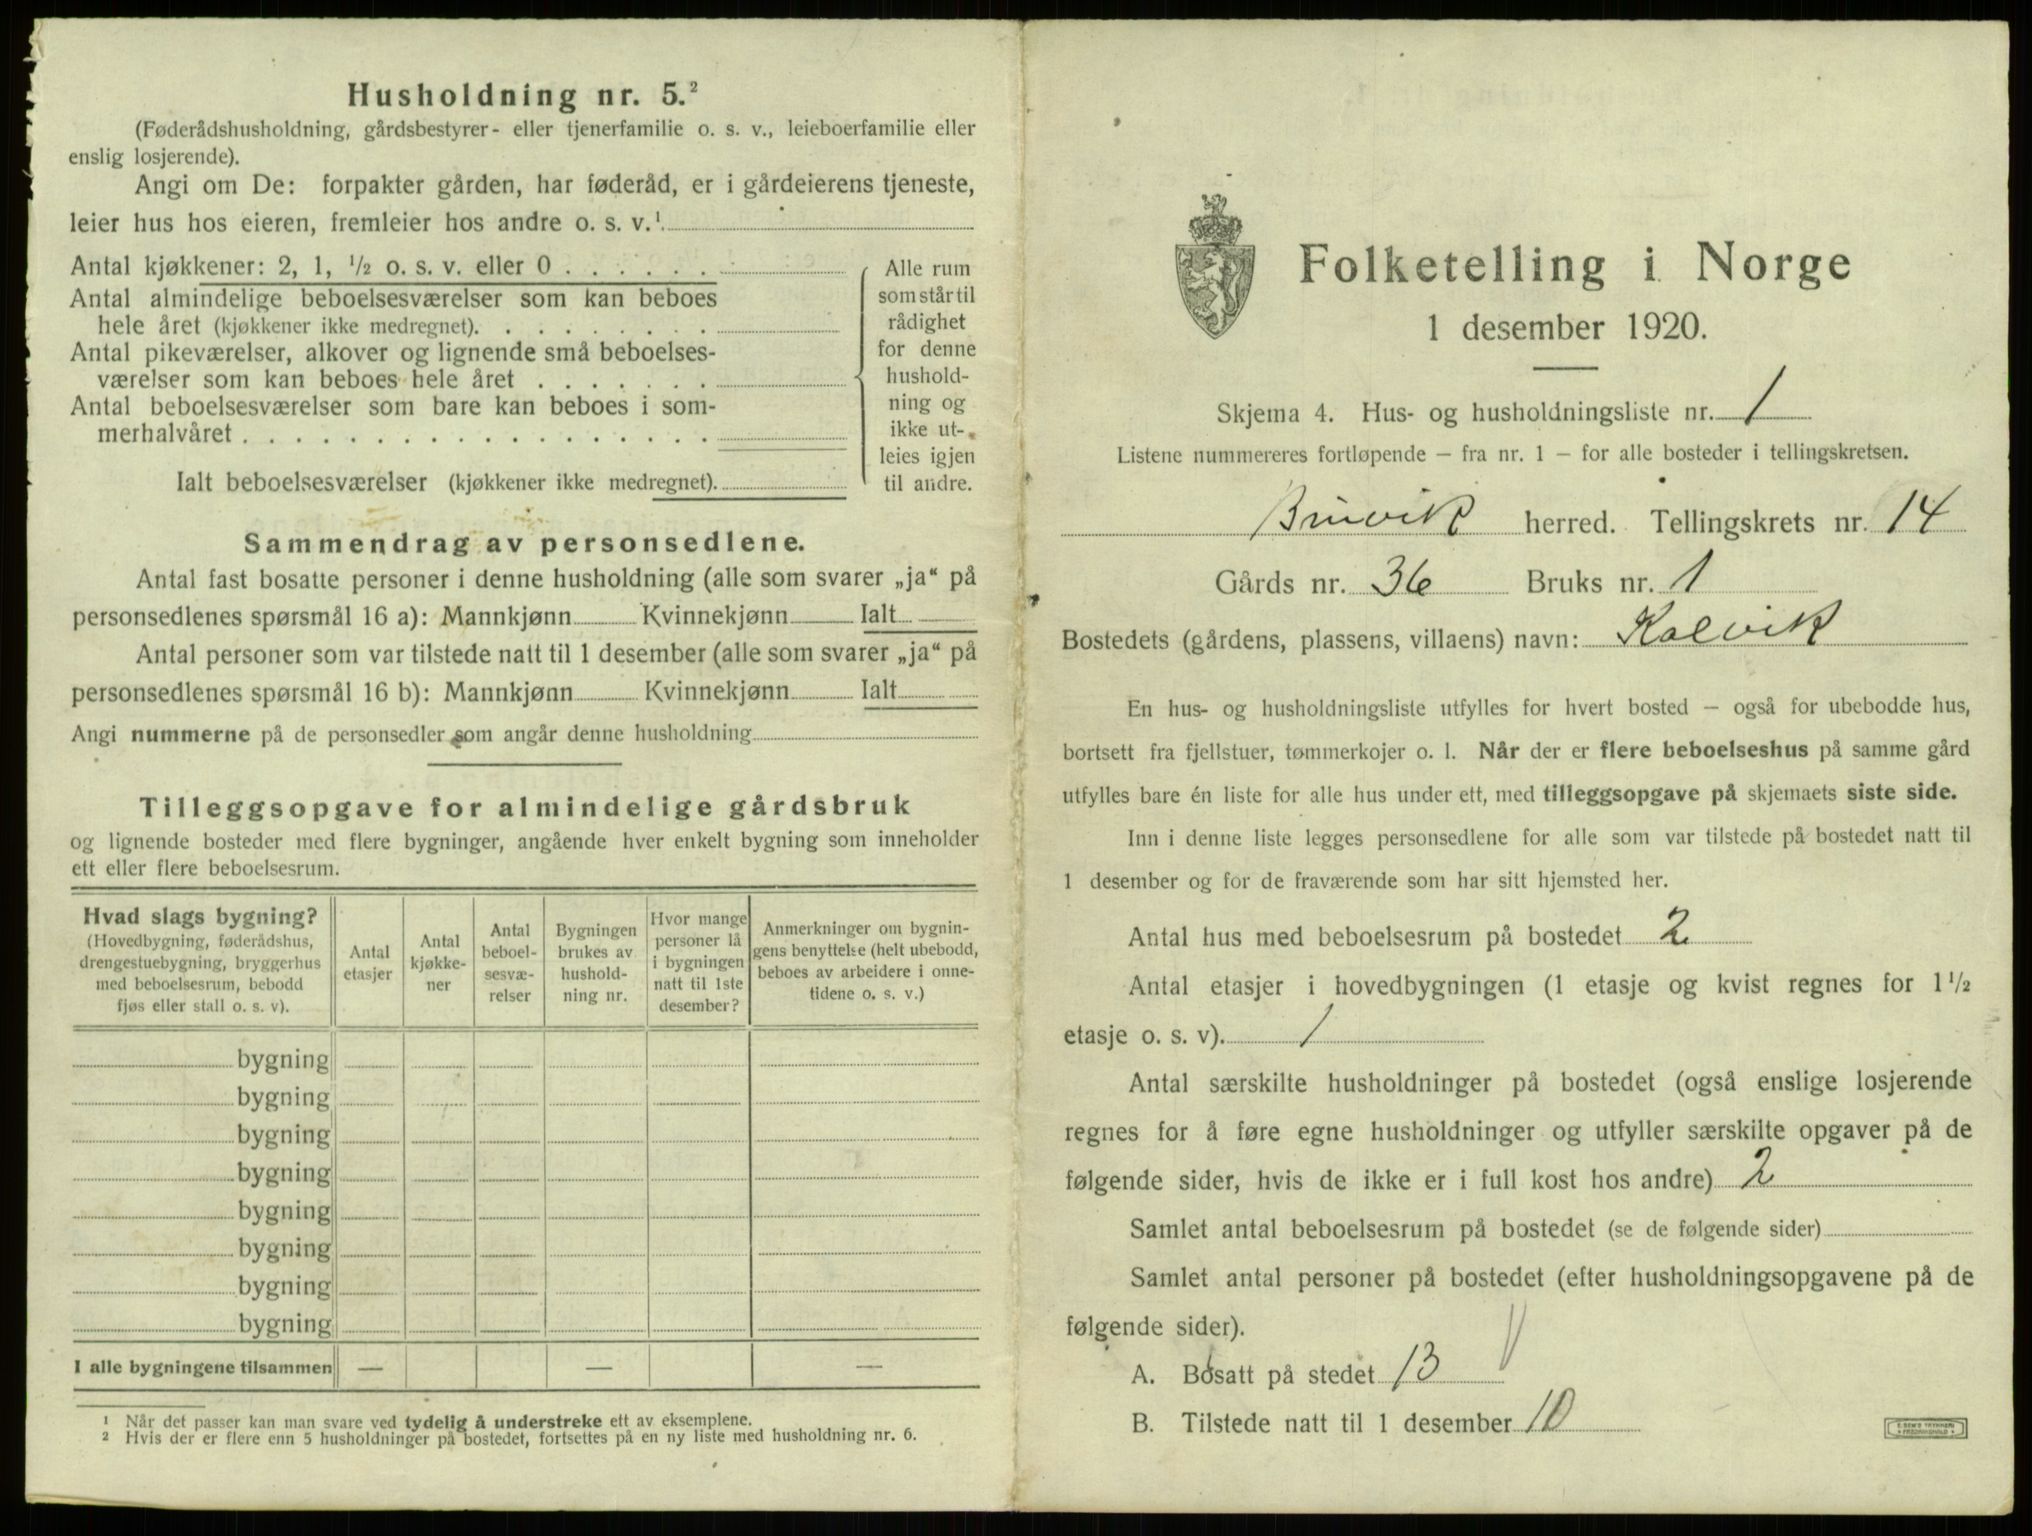 Husholdning nr. 5.²
(Føderådshusholdning, gårdsbestyrer- eller tjenerfamilie o. s. v., leieboerfamilie eller
enslig losjerende).
Angi om De: forpakter gården, har føderåd, er i gårdeierens tjeneste,
leier hus hos eieren, fremleier hos andre o. s. v.¹
Antal kjøkkener: 2, 1, ½ o. s. v. eller 0
Antal almindelige beboelsesværelser som kan beboes
hele året (kjøkkener ikke medregnet).
Antal pikeværelser, alkover og lignende små beboelses-
værelser som kan beboes hele året
Antal beboelsesværelser som bare kan beboes i som-
merhalvåret
Ialt beboelsesværelser (kjøkkener ikke medregnet).
Alle rum
som står til
rådighet
for denne
hushold-
ning og
ikke ut-
leies igjen
til andre.
Sammendrag av personsedlene.
Antal fast bosatte personer i denne husholdning (alle som svarer „ja“ på
personsedlenes spørsmål 16 a): Mannkjønn Kvinnekjønn Ialt
Antal personer som var tilstede natt til 1 desember (alle som svarer „ja“ på
personsedlenes spørsmål 16 b): Mannkjønn Kvinnekjønn Ialt
Angi nummerne på de personsedler som angår denne husholdning
Tilleggsopgave for almindelige gårdsbruk
og lignende bosteder med flere bygninger, angående hver enkelt bygning som inneholder
ett eller flere beboelsesrum.
Hvad slags bygning?
(Hovedbygning, føderådshus,
drengestuebygning, bryggerhus
med beboelsesrum, bebodd
fjøs eller stall o. s. v).
Antal
etasjer
Antal
kjøkke-
ner
Antal
beboel-
sesvæ-
relser
Bygningen
brukes av
hushold-
ning nr.
Hvor mange
personer lå
i bygningen
natt til 1ste
desember?
Anmerkninger om bygnin-
gens benyttelse (helt ubebodd,
beboes av arbeidere i onne-
tidene o. s. v.)
bygning
bygning
bygning
bygning
bygning
bygning
bygning
bygning
I alle bygningene tilsammen — — —
¹ Når det passer kan man svare ved tydelig å understreke ett av eksemplene.
² Hvis der er flere enn 5 husholdninger på bostedet, fortsettes på en ny liste med husholdning nr. 6.
Folketelling i Norge
1 desember 1920.
Skjema 4. Hus- og husholdningsliste nr. 1
Listene nummereres fortløpende – fra nr. 1 – for alle bosteder i tellingskretsen.
Buvik herred. Tellingskrets nr. 14
Gårds nr. 36 Bruks nr. 1
Bostedets (gårdens, plassens, villaens) navn: Kalvik
En hus- og husholdningsliste utfylles for hvert bosted – også for ubebodde hus,
bortsett fra fjellstuer, tømmerkojer o. l. Når der er flere beboelseshus på samme gård
utfylles bare én liste for alle hus under ett, med tilleggsopgave på skjemaets siste side.
Inn i denne liste legges personsedlene for alle som var tilstede på bostedet natt til
1 desember og for de fraværende som har sitt hjemsted her.
Antal hus med beboelsesrum på bostedet 2
Antal etasjer i hovedbygningen (1 etasje og kvist regnes for 1½
etasje o. s. v). 1
Antal særskilte husholdninger på bostedet (også enslige losjerende
regnes for å føre egne husholdninger og utfyller særskilte opgaver på de
følgende sider, hvis de ikke er i full kost hos andre) 2
Samlet antal beboelsesrum på bostedet (se de følgende sider)
Samlet antal personer på bostedet (efter husholdningsopgavene på de
følgende sider).
A. Bosatt på stedet 13
B. Tilstede natt til 1 desember 10